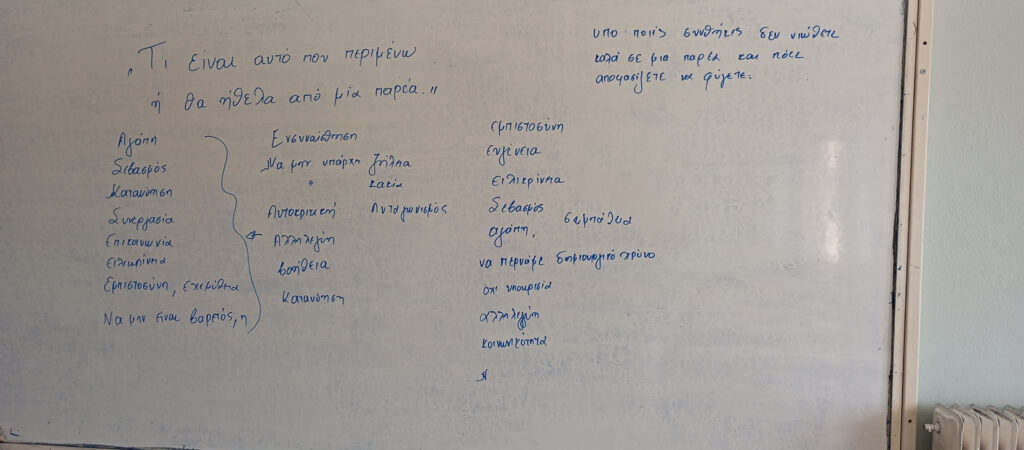 „Τι είναι αυτό που περιμένω
ή θα ήθελα από μία παρέα."
υπο ποιές συνθήκες δεν νιώθετε
καλά σε μια παρέα και πότε
αποφασίζετε να φύγετε.
Αγάπη
Σεβασμός
Κατανόηση
Συνεργασία
Επικοινωνία
ειλικρίνεια
Εμπιστοσύνη, εχεμύθεια
Να μην είναι βαρετός, η
Ενσυναίσθηση
Να μην υπάρχη ζήλεια
" κακία
Αυτοκριτική Ανταγωνισμός
Αλληλεγγύη
βοήθεια
Κατανόηση
εμπιστοσύνη
ευγένεια
ειλικρίνεια
Σεβασμός
αγάπη, συμπάθεια
να περνάμε δημιουργικό χρόνο
όχι υποκρισία
αλληλεγγύη
κοινωνικότητα